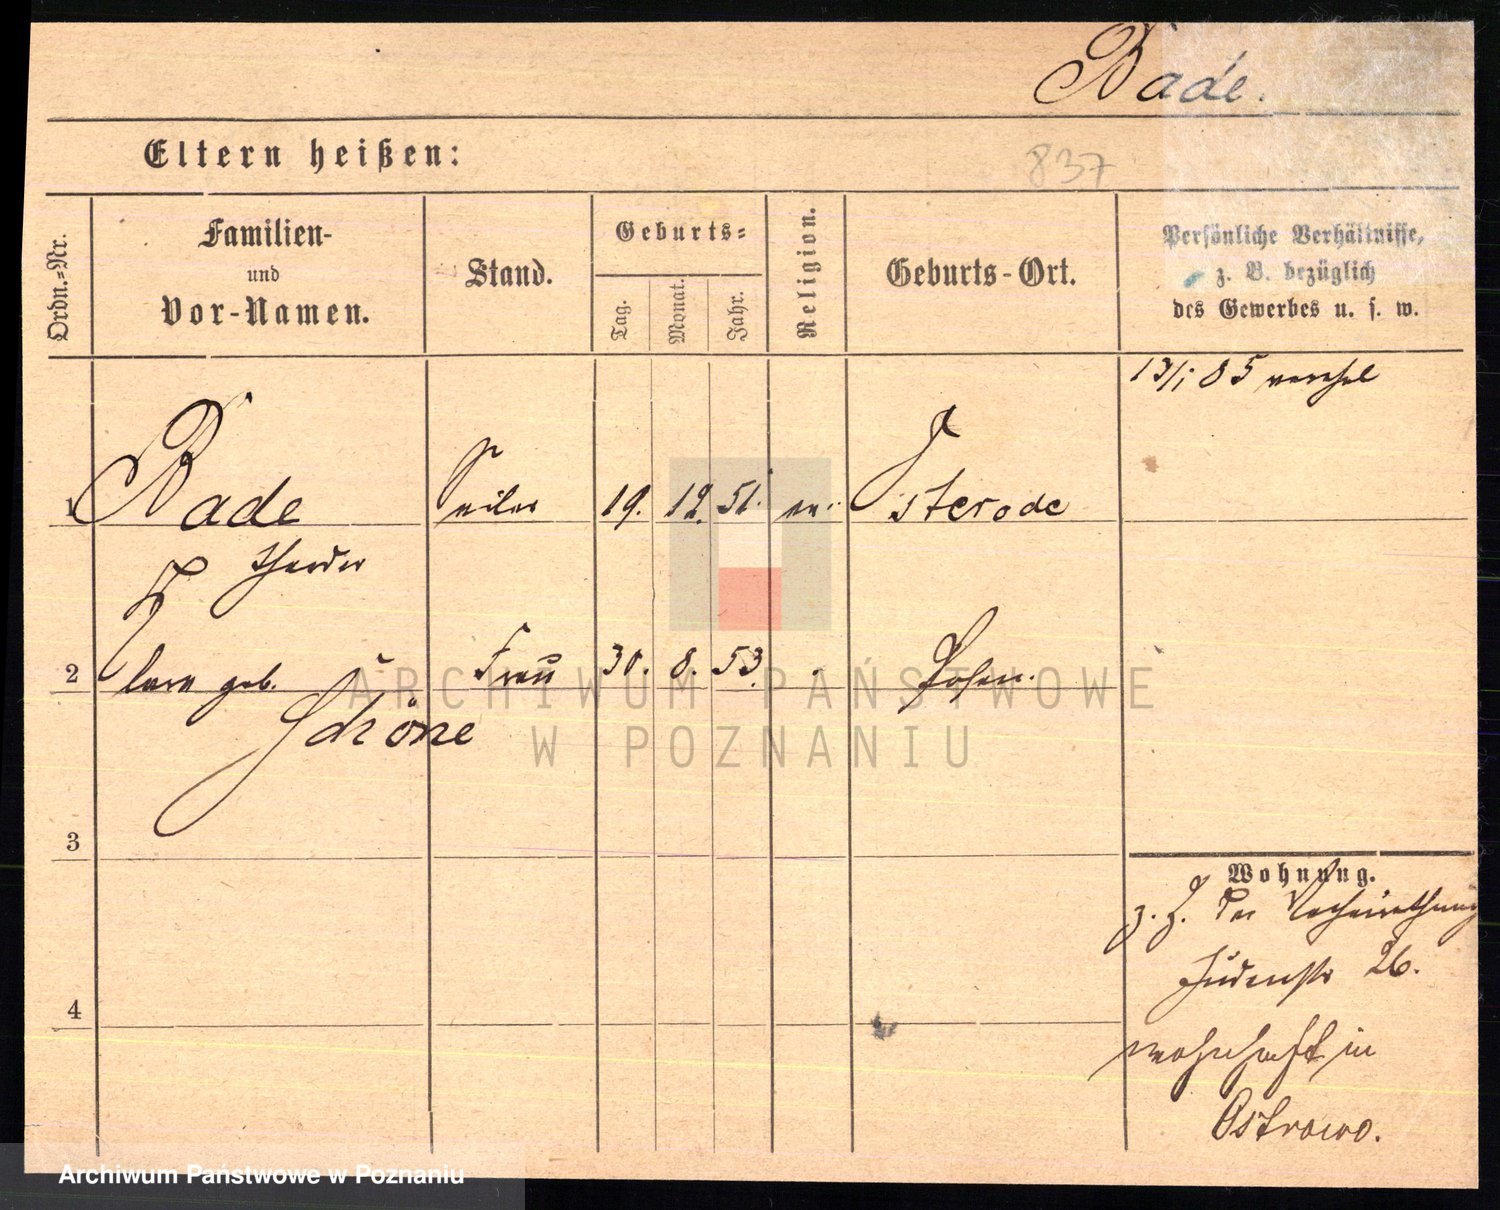 Bade.
Eltern heißen:
837
Ordn.-Nr.
Familien-
und
Vor-Namen.
Stand.
Geburts-
Tag.
Monat.
Jahr.
Religion.
Geburts-Ort.
Persönliche Verhältnisse,
z. B. bezüglich
des Gewerbes u. s. w.
13/1 85
1 Bade Seiler 19. 12. 51. ev. Osterode
Theodor
2 Clara geb. Frau 30. 8. 53. Posen.
Schöne
3
4
Wohnung.
z. Z. der Verheirathung
Judenstr 26.
wohnhaft in
Ostrowo.
ARCHIWUM PAŃSTWOWE
W POZNANIU
Archiwum Państwowe w Poznaniu